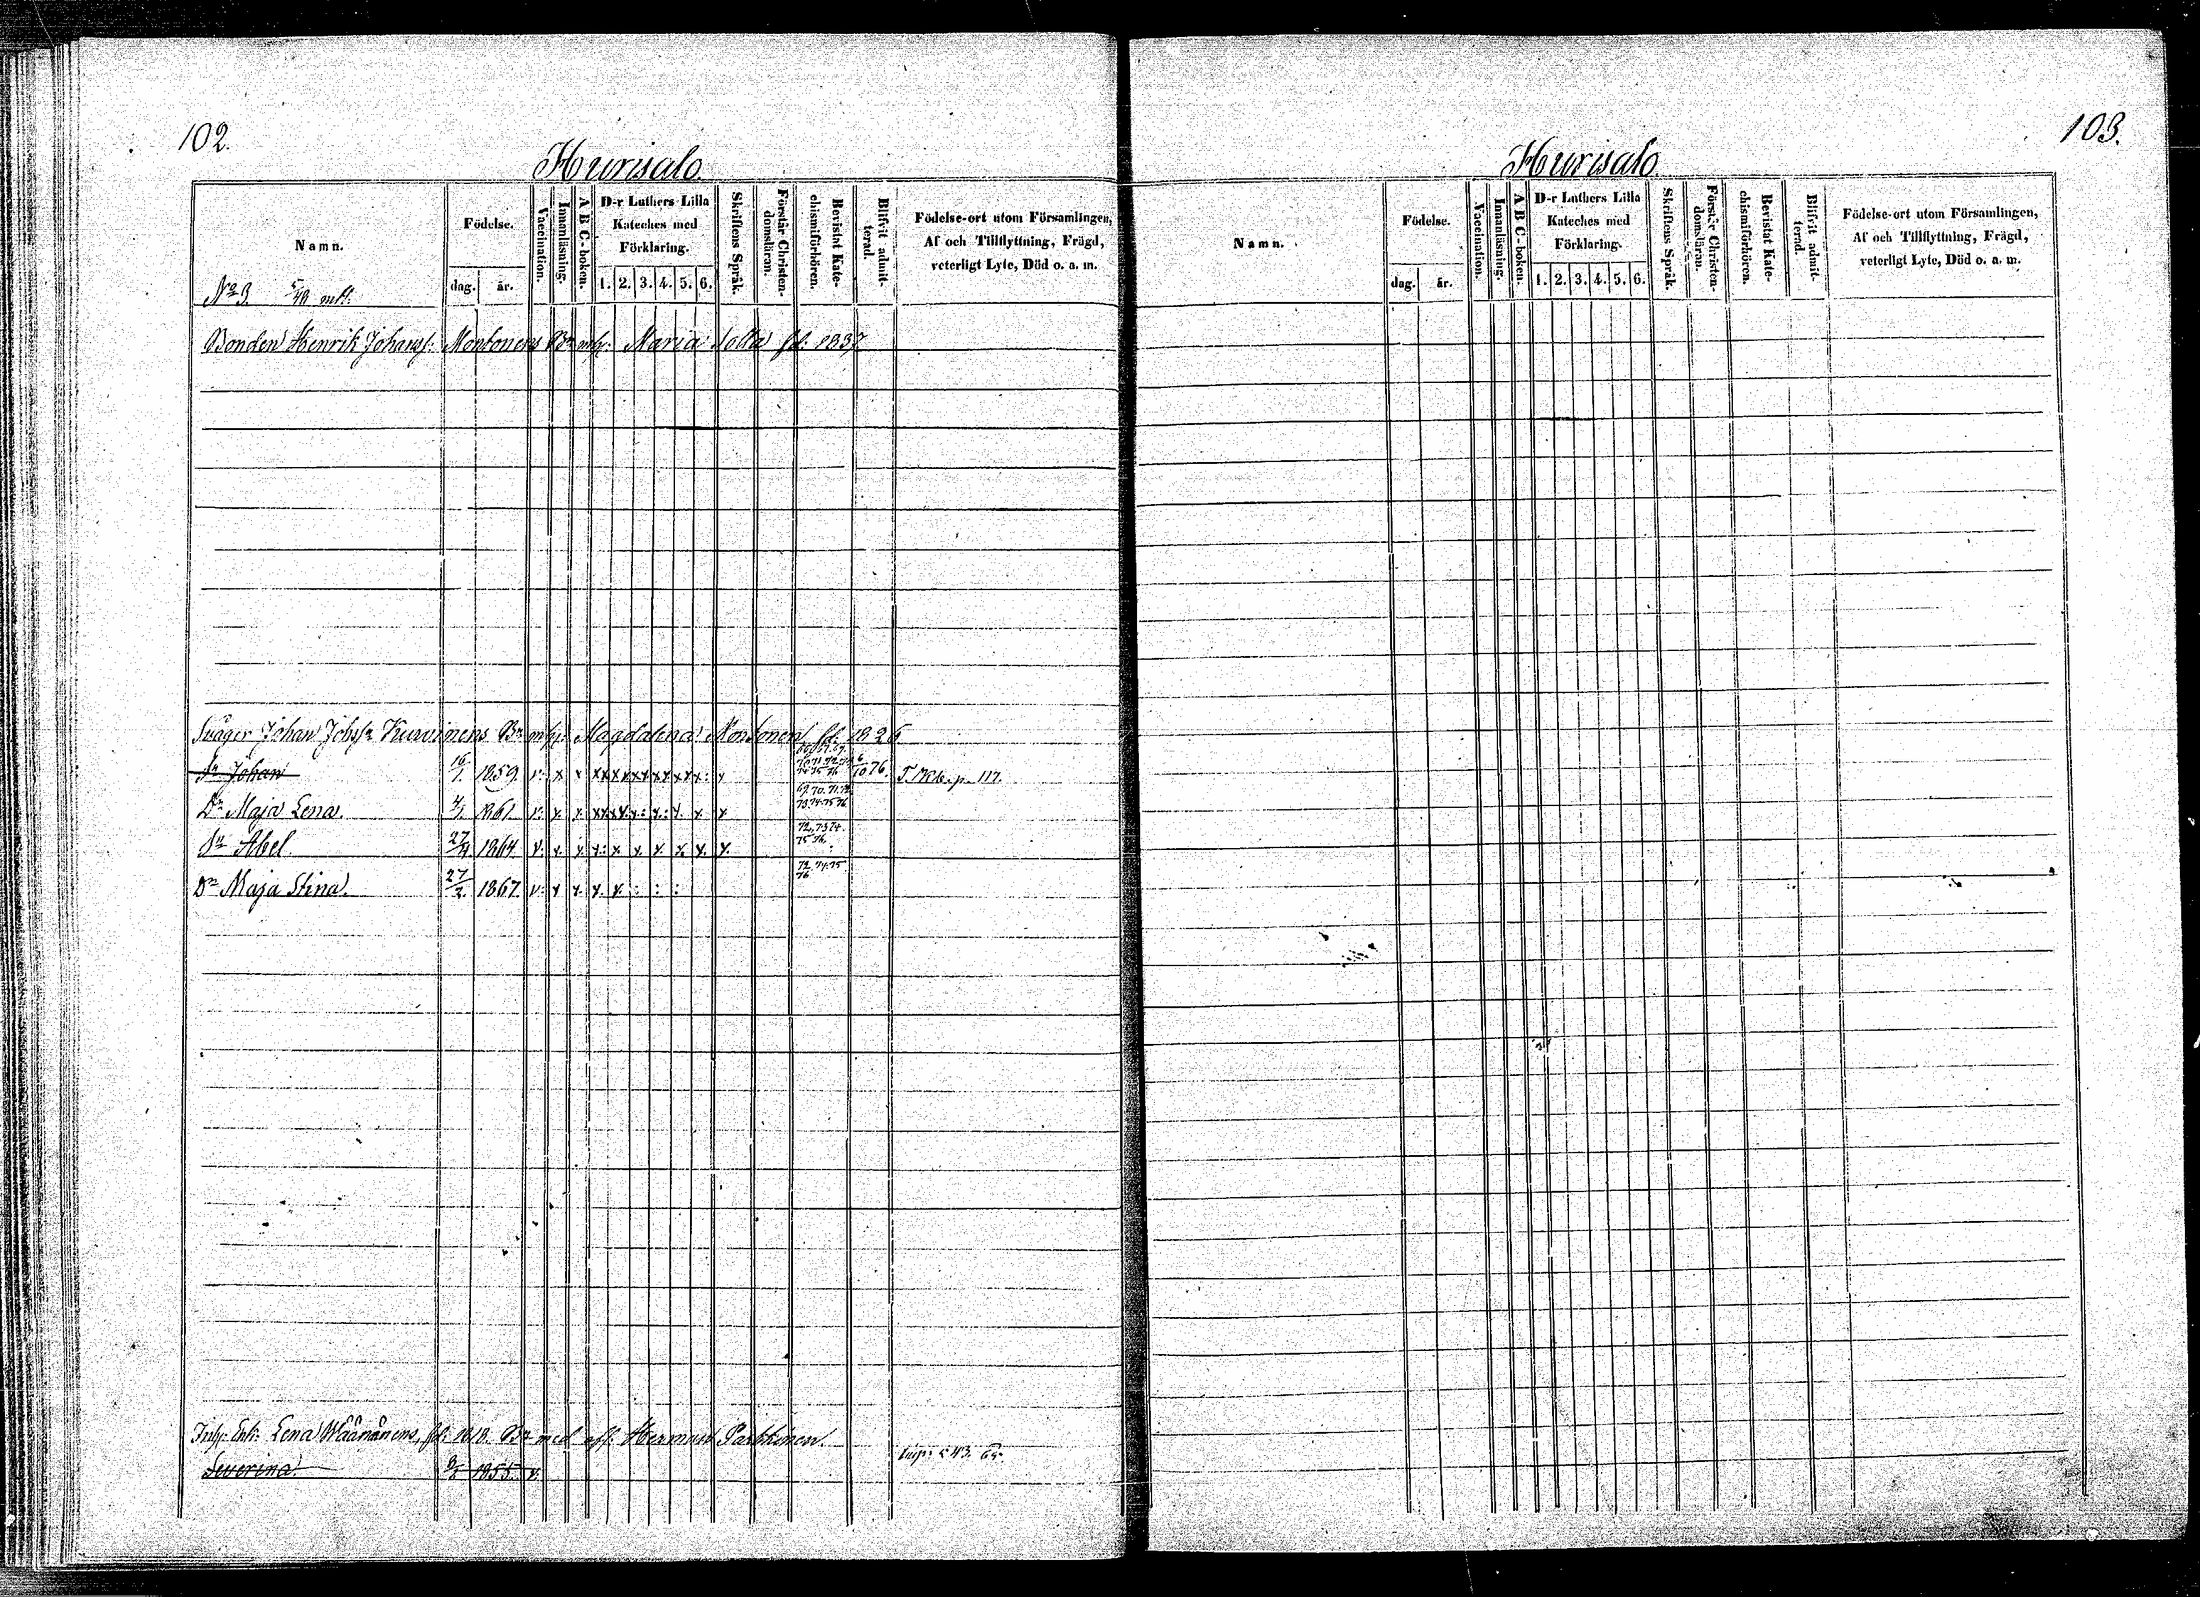 102.
Hurisalo
Namn.
Födelse.
dag.
år.
Vaccination.
Innanläsning.
A B C-boken.
D-r Luthers Lilla
Kateches med
Förklaring.
1. 2. 3. 4. 5. 6.
Skriftens Språk.
Förstår Christen-
domsläran.
Bevistat Kate-
chismiförhören.
Blifvit admit-
terad.
Födelse-ort utom Församlingen,
Af och Tillflyttning, Frägd,
veterligt Lyte, Död o. a. m.
No 3.
Bonden Henrik Johanss: Montonens Bn Maria föd. 1837
Svåger Johan Kurvinens Bn Magdalena Montonen föd. 1826
Sn Johan 16/1. 1859. v. x x x x x x x x x x x: x 6/10 76. p. 117.
Dr Maja Lena. 4/1 1861 v. x. x. 69. 70. 71. 72. 73. 74. 75. 76
Sn Abel. 1864 v. x. x. x: x x. x. x. x. x. 72. 73. 74. 75. 76.
Dr Maja Stina. 27/2. 1867. v. x x. x. x. : : : 72. 74. 75. 76
Inh: Enk: Lena Wäänänens, föd. 1818. Bn med afl. Herman Parkkinen.
Severina. 1855. v. 43. 65.
103.
Hurisalo
Namn.
Födelse.
dag.
år.
Vaccination.
Innanläsning.
A B C-boken.
D-r Luthers Lilla
Kateches med
Förklaring.
1. 2. 3. 4. 5. 6.
Skriftens Språk.
Förstår Christen-
domsläran.
Bevistat Kate-
chismiförhören.
Blifvit admit-
terad.
Födelse-ort utom Församlingen,
Af och Tillflyttning, Frägd,
veterligt Lyte, Död o. a. m.